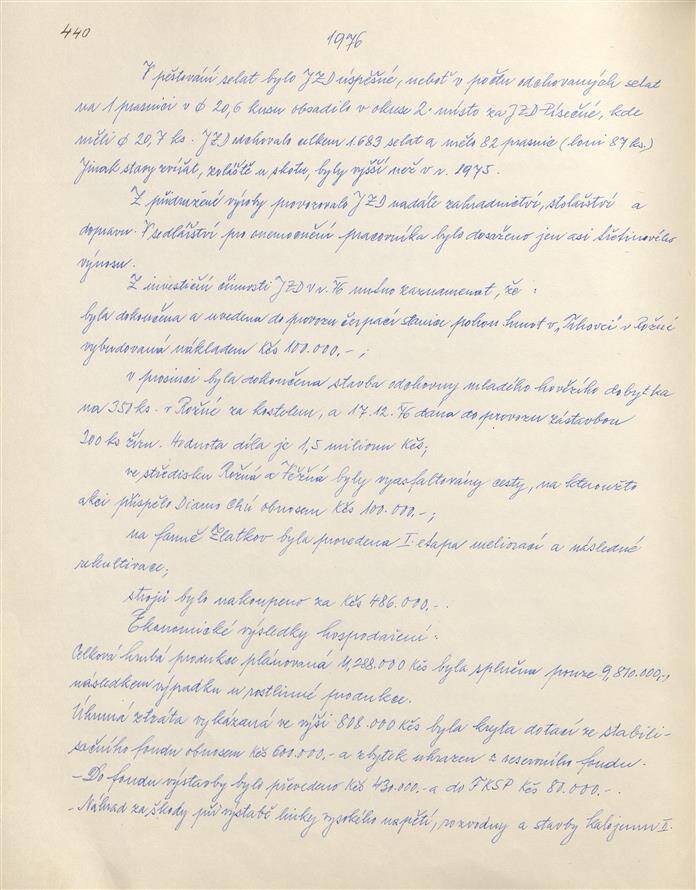 440
1976
V pěstování selat bylo JZD úspěšné, neboť v počtu odchovaných selat
na 1 prasnici v ϕ 20,6 kusu obsadilo v okrese 2. místo za JZD Písečné, kde
měli ϕ 20,7 ks. JZD odchovalo celkem 1.683 selat a mělo 82 prasnic (loni 87 ks.)
Jinak stavy zvířat, zvláště u skotu, byly vyšší než v r. 1975.
Z přidružené výroby provozovalo JZD nadále zahradnictví, stolařství a
dopravu. V sedlářství pro onemocnění pracovníka bylo dosaženo jen asi třetinového
výnosu.
Z investiční činnosti JZD v r. 76 nutno zaznamenat, že :
byla dokončena a uvedena do provozu čerpací stanice pohon. hmot v „Trhovci" v Rožné
vybudovaná nákladem Kčs 100.000,- ;
v prosinci byla dokončena stavba odchovny mladého hovězího dobytka
na 350 ks. v Rožné za kostelem, a 17.12. 76 dána do provozu zástavbou
300 ks žírn. Hodnota díla je 1,5 milionu Kčs;
ve středisku Rožná a Věžná byly vyasfaltovány cesty, na kteroužto
akci přispělo Diamo Chú obnosem Kčs 100.000.- ;
na farmě Zlatkov byla provedena I. etapa meliorací a následné
rekultivace;
strojů bylo nakoupeno za Kčs 486.000.- .
Ekonomické výsledky hospodaření :
Celková hrubá produkce plánovaná 11,288.000 Kčs byla splněna pouze 9,810.000,-,
následkem výpadku u rostlinné produkce.
Úhrnná ztráta vykázaná ve výši 808.000 Kčs byla kryta dotací ze stabili-
sačního fondu obnosem Kčs 600.000.- a zbytek uhrazen z reservního fondu.
- Do fondu výstavby bylo převedeno Kčs 430.000.- a do FKSP Kčs 80.000.- .
- Náhrad za škody při výstavbě linky vysokého napětí, rozvodny a stavby kalojemu II.